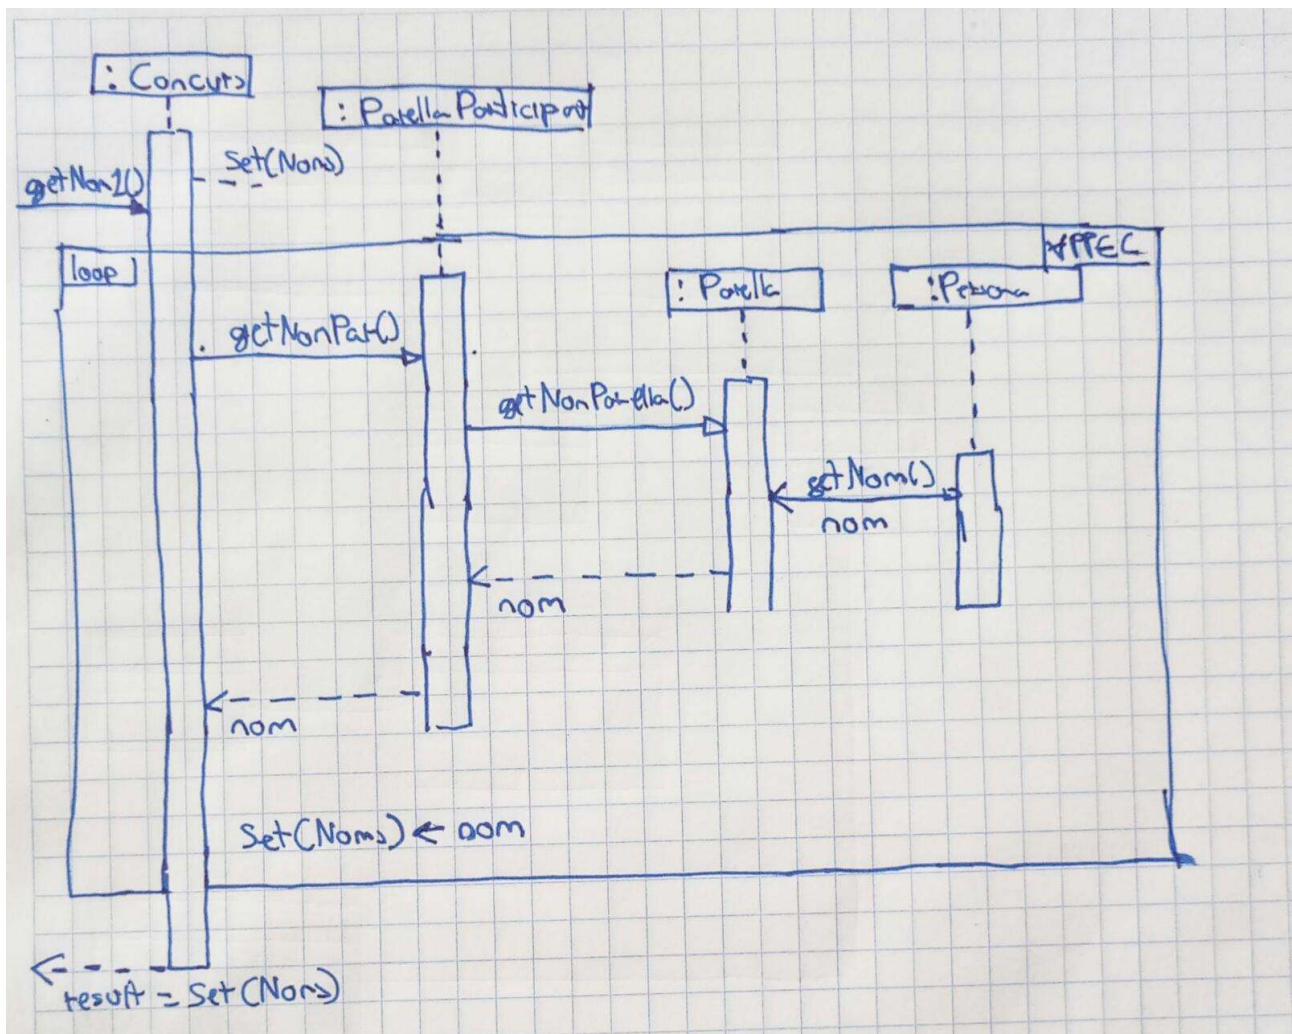 : Concurs
: ParellaParticipant
Set(Noms)
getNom1()
loop
∀PPEC
: Parella
:Persona
getNomPar()
getNomParella()
getNom()
nom
nom
nom
Set(Noms) ← nom
result = Set(Noms)